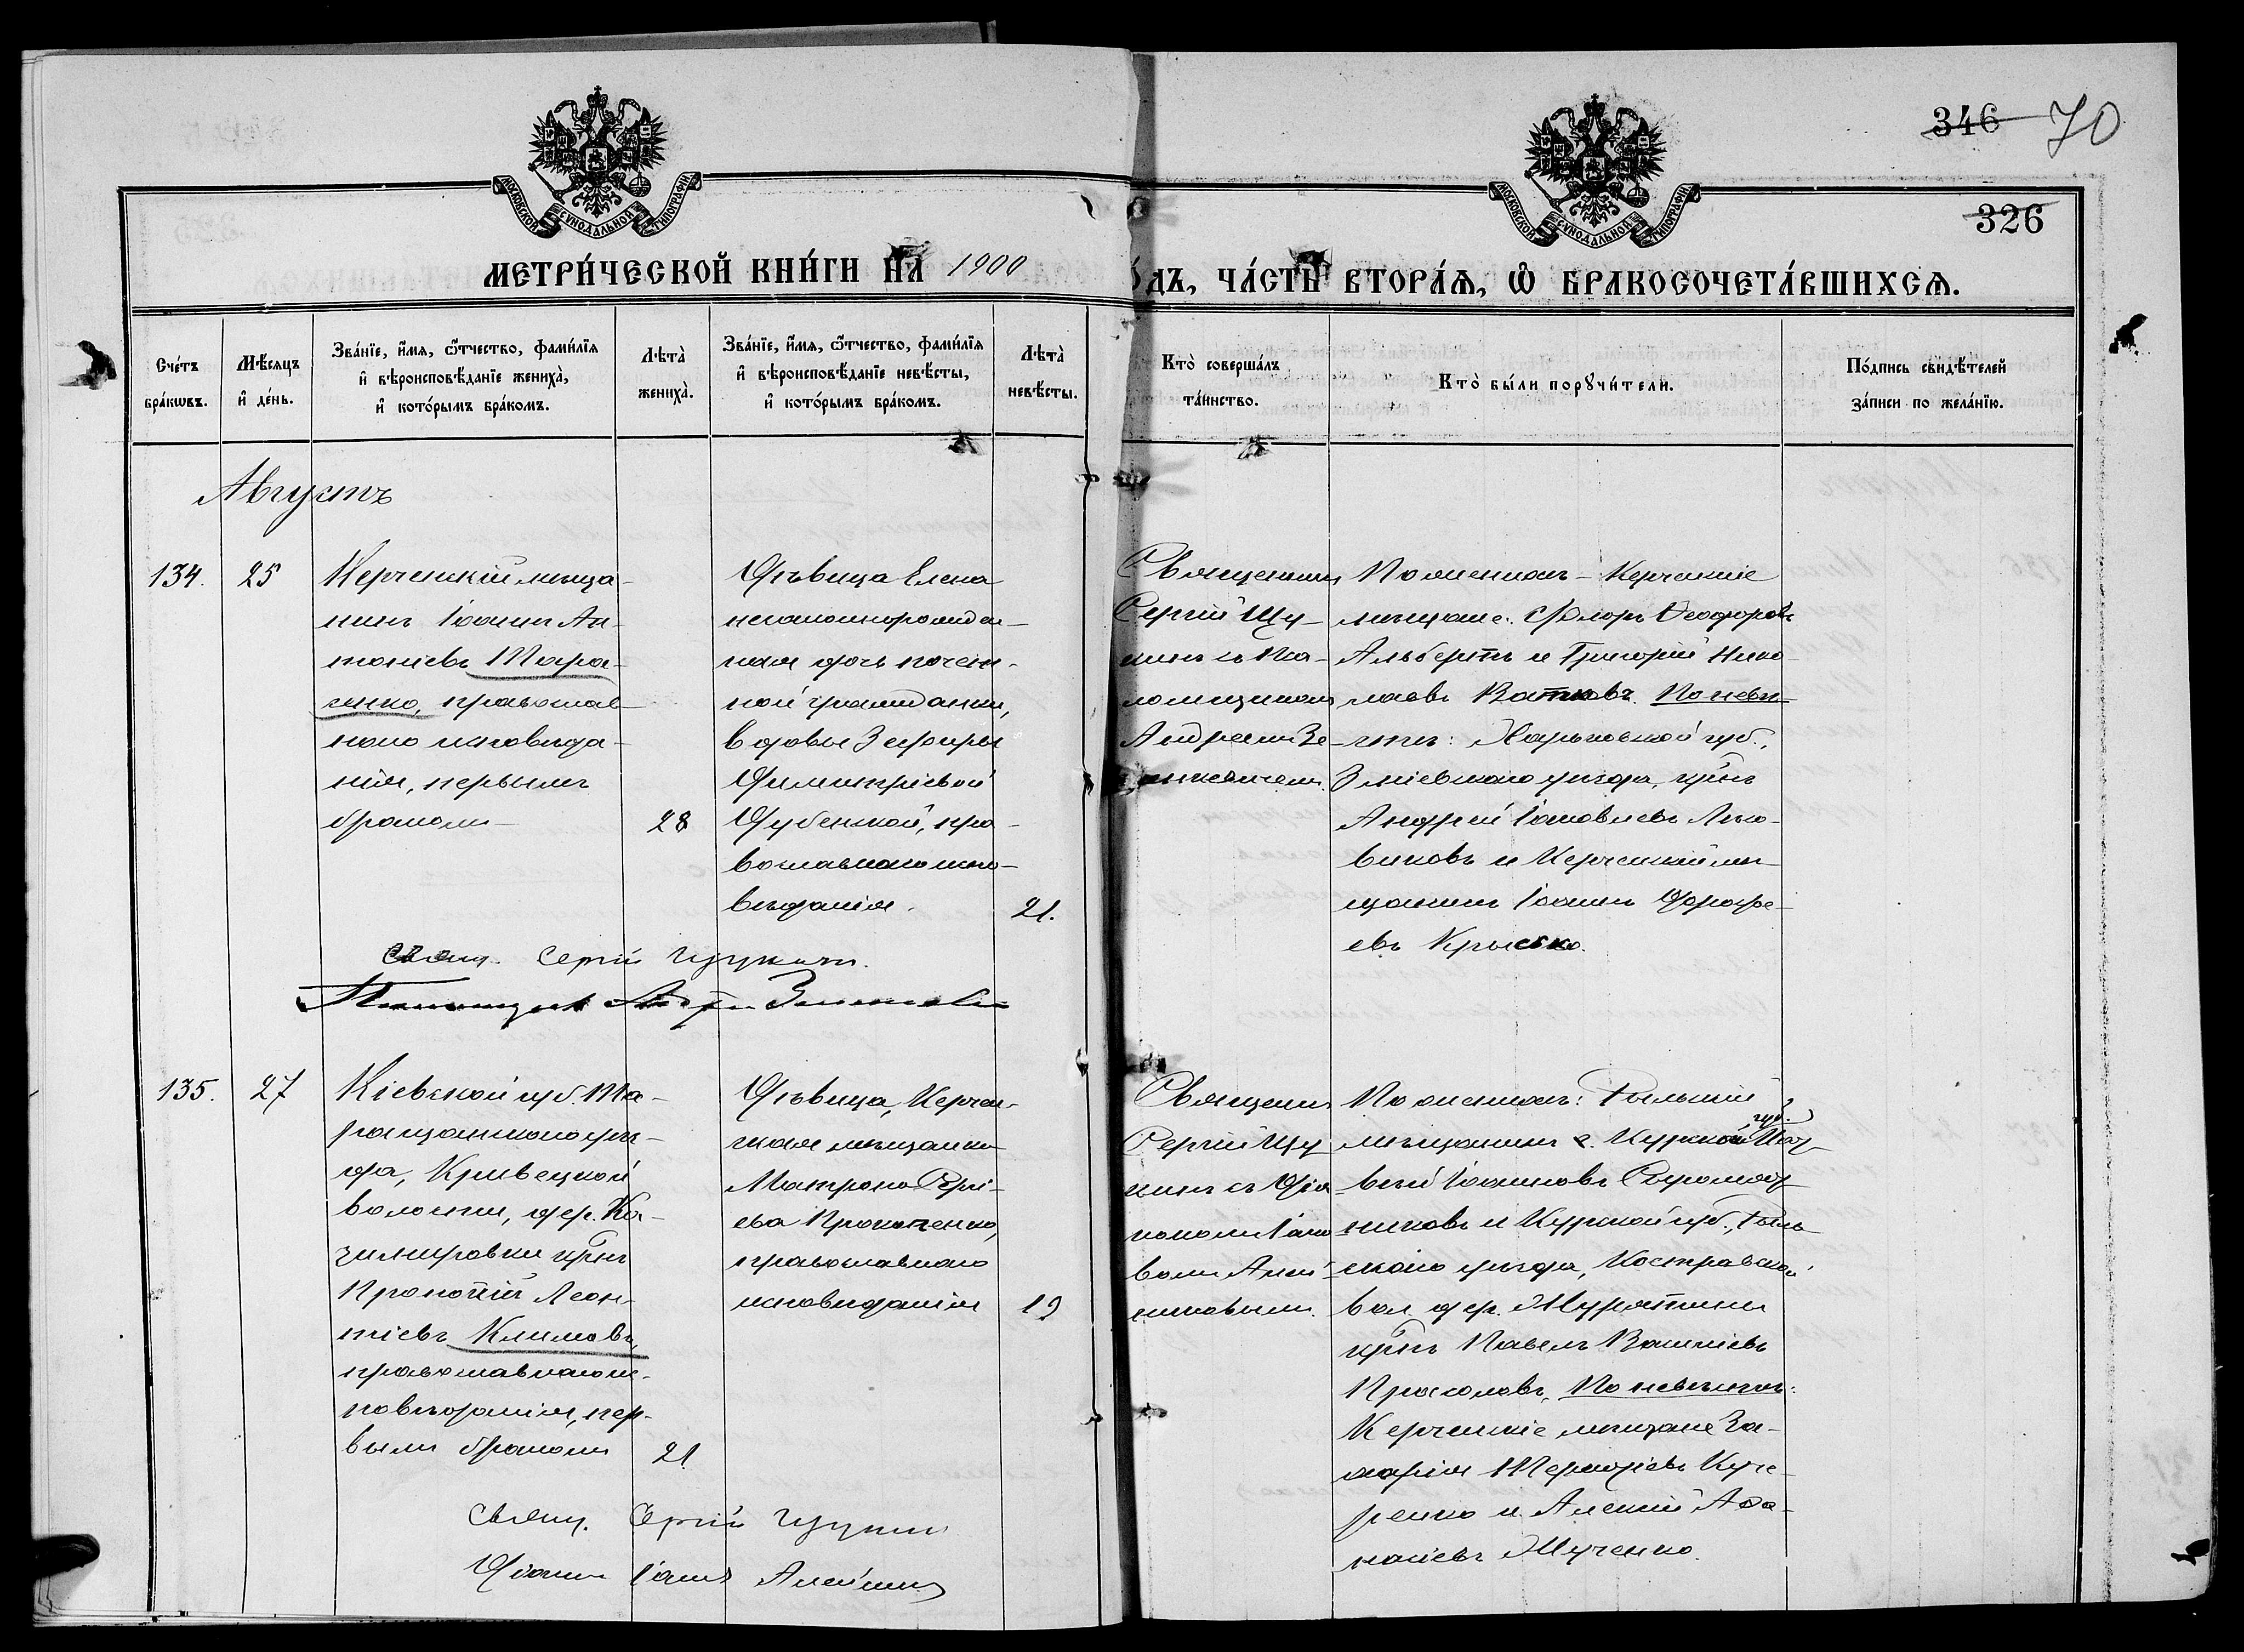 346 70
326
МОСКОВСКОЙ СѴНОДАЛЬНОЙ ТИПОГРАФІИ
МОСКОВСКОЙ СѴНОДАЛЬНОЙ ТИПОГРАФІИ
МЕТРИ́ЧЕСКОЙ КНИ́ГИ НА 1900
ДЪ, ЧА́СТЬ ВТОРА́Ѧ, Ѽ БРАКОСОЧЕТА́ВШИХСѦ.
Сче́тъ бра́кѡвъ.
Мѣ́сяцъ и҆ де́нь.
Зва́нїе, и҆́мя, ѻ҆́тчество, фами́лїя
и҆ вѣроисповѣ́данїе жениха̀,
и҆ кото́рымъ бра́комъ.
Лѣта̀ жениха̀.
Зва́нїе, и҆́мя, ѻ҆́тчество, фами́лїя
и҆ вѣроисповѣ́данїе невѣ́сты,
и҆ кото́рымъ бра́комъ.
Лѣта̀ невѣ́сты.
Кто̀ соверша́лъ та́инство.
Кто̀ бы́ли порꙋчи́тели.
По́дпись свидѣ́телей
за́писи по жела́нїю.
Августъ
134.
25
Керченскій мѣща-
нинъ Іоаннъ Ан-
тоніевъ Тара-
сенко, православ-
наго исповѣда-
нія, первымъ
бракомъ
28
Дѣвица Елена
незаконнорожден-
ная дочь почет-
ной гражданки,
вдовы Земфиры
Димитріевой
Дубенской, пра-
вославнаго испо-
вѣданія.
21.
Священникъ
Сергій Щу-
кинъ съ Пса-
ломщикомъ
Андреемъ Зе-
По женихѣ: Керченскіе
мѣщане: Флоръ Ѳеодоровъ
Альбертъ и Григорій Нико-
лаевъ Ватковъ. По невѣ-
стѣ: Харьковской губ.,
Зміевскаго уѣзда, кр̃нъ
Андрей Іаковлевъ Ляхо-
виковъ и Керченскій мѣ-
щанинъ Іоаннъ Дорофе-
евъ Крысько.
Свящ. Сергій Щукинъ.
Псаломщикъ Андрей
135.
27
Кіевской губ. Та-
ращанскаго уѣз-
да, Кривецкой
волости, дер. Ка-
зимировки кр̃нъ
Прокопій Леон-
тіевъ Климовъ,
православнаго ис-
повѣданія, пер-
вымъ бракомъ
21
Дѣвица, Керчен-
ская мѣщанка
Матрона Сергі-
ева Прокопенко,
православнаго
исповѣданія
19
Священн.
Сергій Щу-
кинъ съ Діа-
кономъ Іако-
вомъ Алей-
никовымъ.
По женихѣ: Рыльскій
мѣщанинъ г. Курской губ. Мат-
вѣй Іоанновъ Сыромят-
никовъ и Курской губ., Рыль-
скаго уѣзда, Костравской
вол. дер. Муратины
кр̃нъ Павелъ Василіевъ
Прасоловъ, По невѣстѣ:
Керченскіе мѣщане За-
харія Терентіевъ Куче-
ренко и Алексій Аѳа-
насіевъ Жученко.
Свящ. Сергій Щукинъ
Діаконъ Іаковъ Алейниковъ